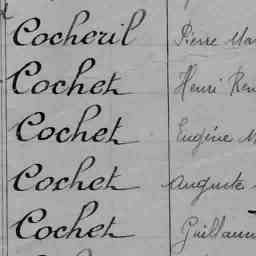 Cocheril Pierre
Cochet Henri
Cochet Eugène
Cochet Auguste
Cochet